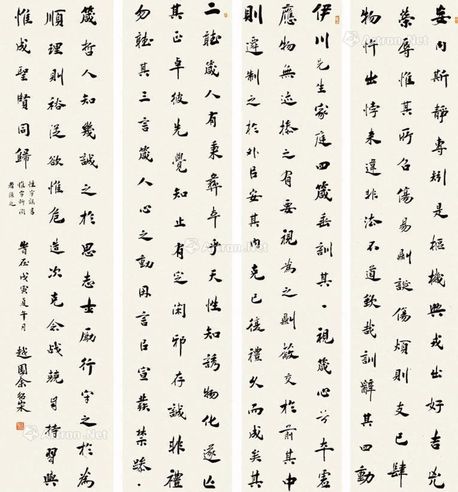 妄內斯靜專矧是樞機興戎出好吉凶
榮辱惟其所召傷易則誕傷煩則支己肆
物忤出悖來違非法不道欽哉訓辭其四動
伊川先生家庭四箴垂訓其一視箴心兮本虛
應物無迹操之有要視為之則蔽交於前其中
則遷制之於外以安其內克己復禮久而成矣其
二聽箴人有秉彝本乎天性知誘物化遂亡
其正卓彼先覺知止有定閑邪存誠非禮
勿聽其三言箴人心之動因言以宣發禁躁
箴哲人知幾誠之於思志士勵行守之於為
順理則裕從欲惟危造次克念戰兢自持習與
惟成聖賢同歸
性字誤書
戊寅夏午月 越園余紹宋
Artron.Net
Artron.Net
Artron.Net
Artron.Net